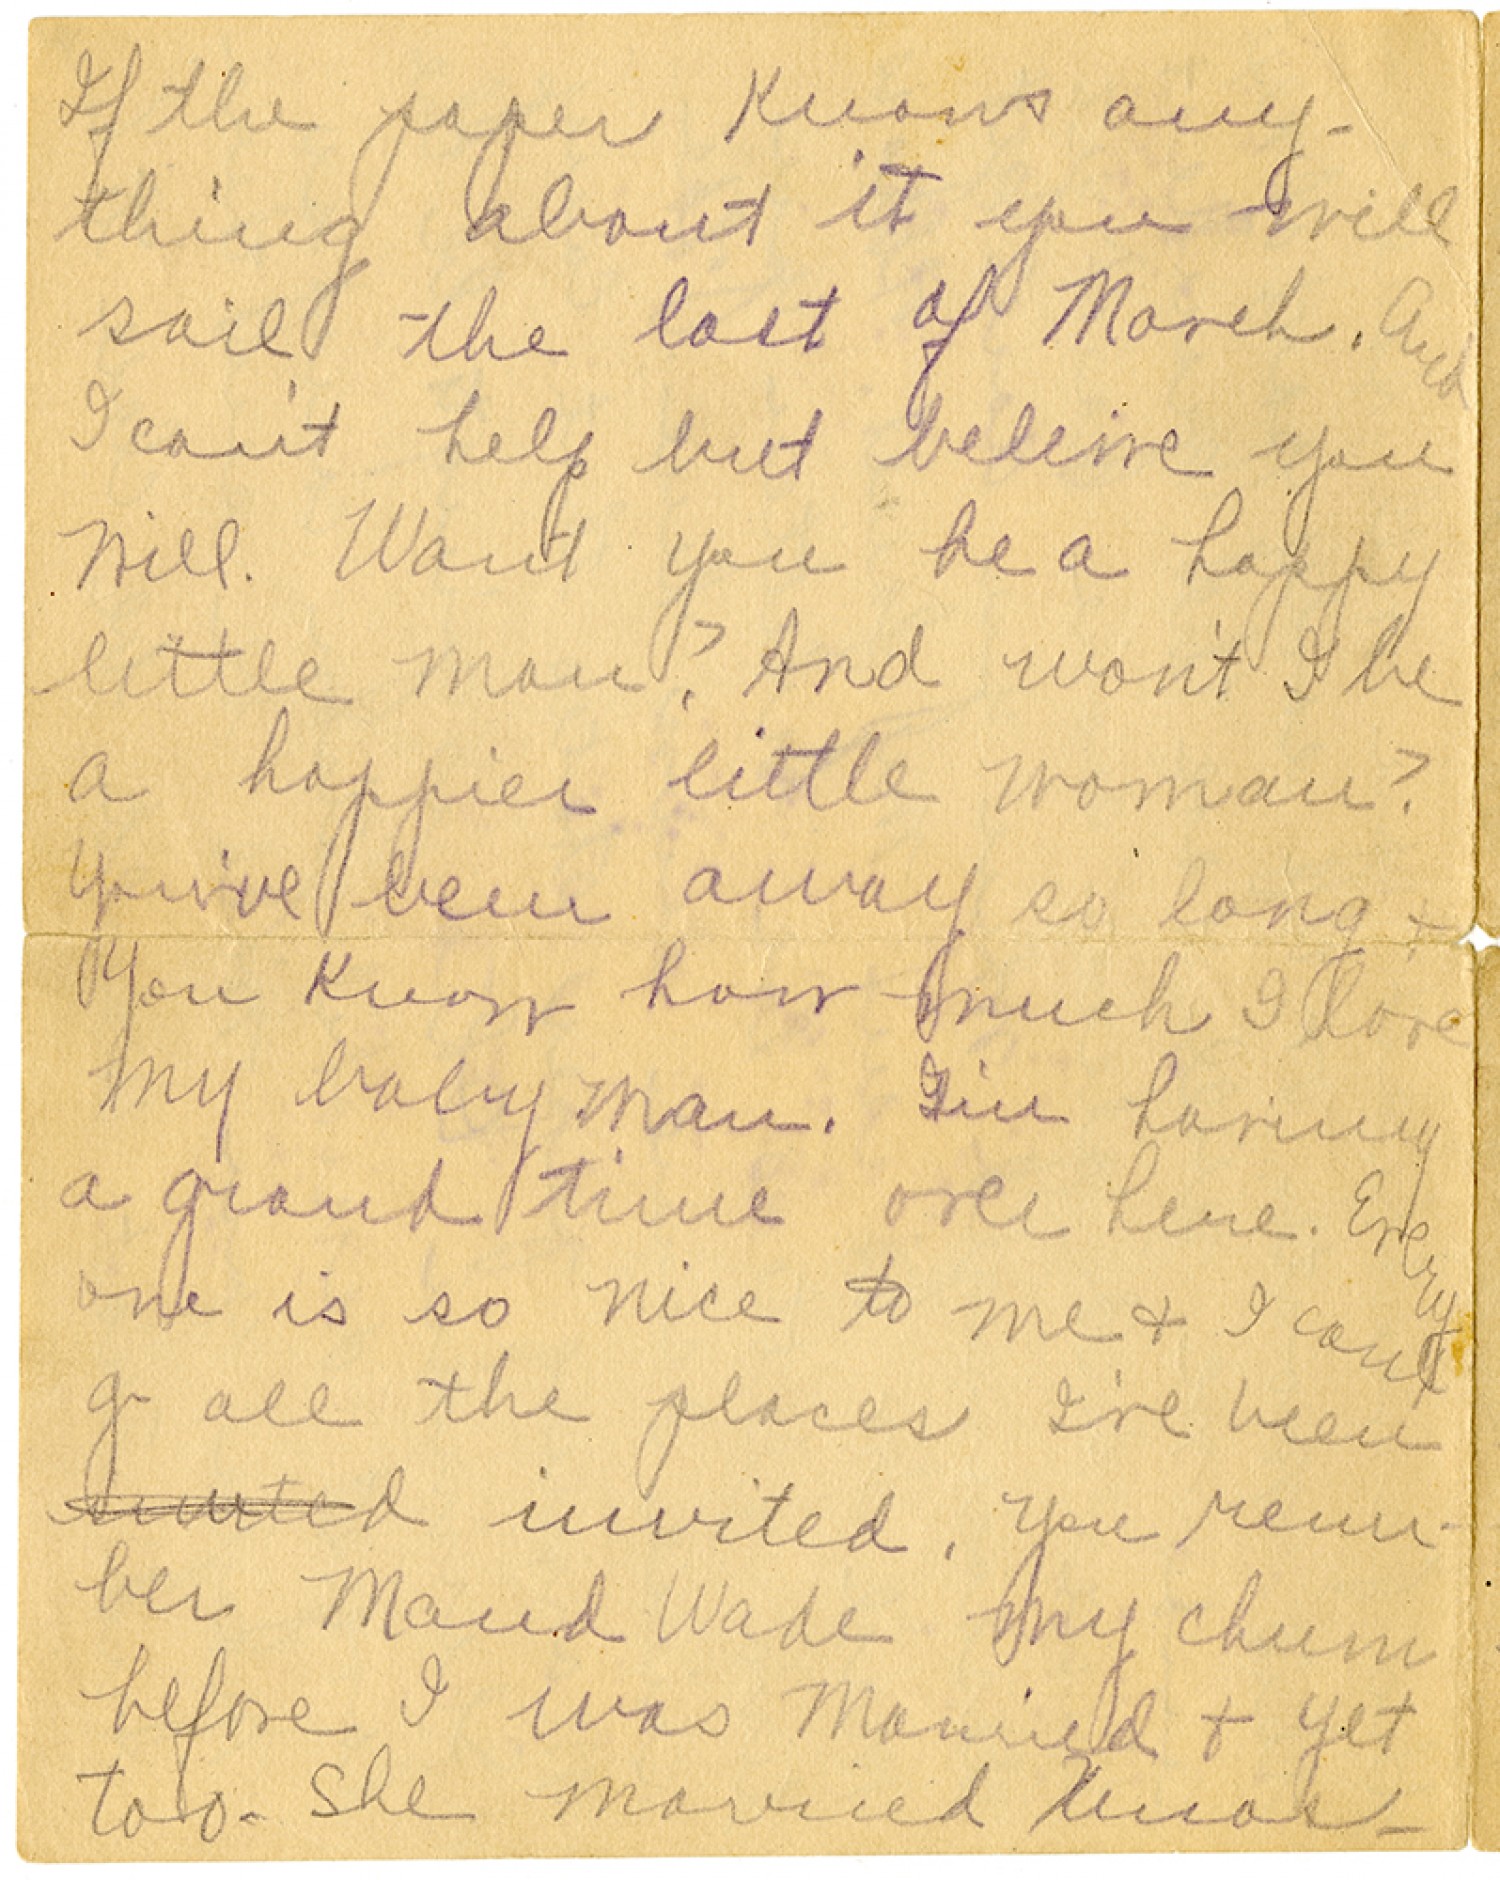 If the paper knows any-
thing about it you will
sail the last of March. And
I can't help but beleive you
will. Won't you be a happy
little man? And won't I be
a happier little woman?
You've been away so long +
you know how much I love
my baby man. I'm having
a grand time over here. Every
one is so nice to me + I can't
go all the places I've been
invited. You remem-
ber Maud Wade my chum
before I was married + yet
too - She married